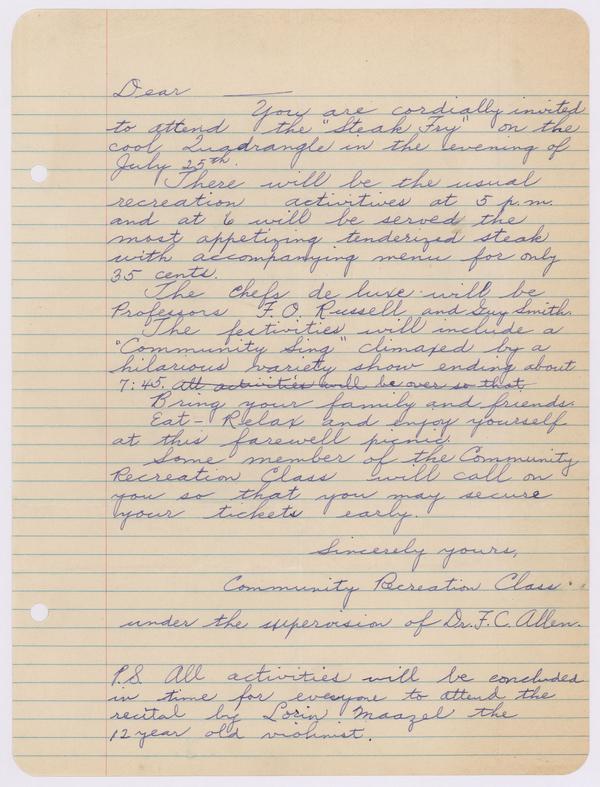 Dear
You are cordially invited
to attend the "Steak Fry" on the
cool Quadrangle in the evening of
July 25th.
There will be the usual
recreation activitives at 5 p.m.
and at 6 will be served the
most appetizing tenderized steak
with accompanying menu for only
35 cents.
The chefs de luxe will be
Professors F. O. Russell, and Guy Smith.
The festivities will include a
"Community Sing" climaxed by a
hilarious variety show ending about
7:45. All activities will be over so that
Bring your family and friends.
Eat - Relax and enjoy yourself
at this farewell picnic.
Some member of the Community
Recreation Class will call on
you so that you may secure
your tickets early.
Sincerely yours,
Community Recreation Class.
under the supervision of Dr. F. C. Allen.
P.S. All activities will be concluded
in time for everyone to attend the
recital by Lorin Maazel the
12 year old violinist.